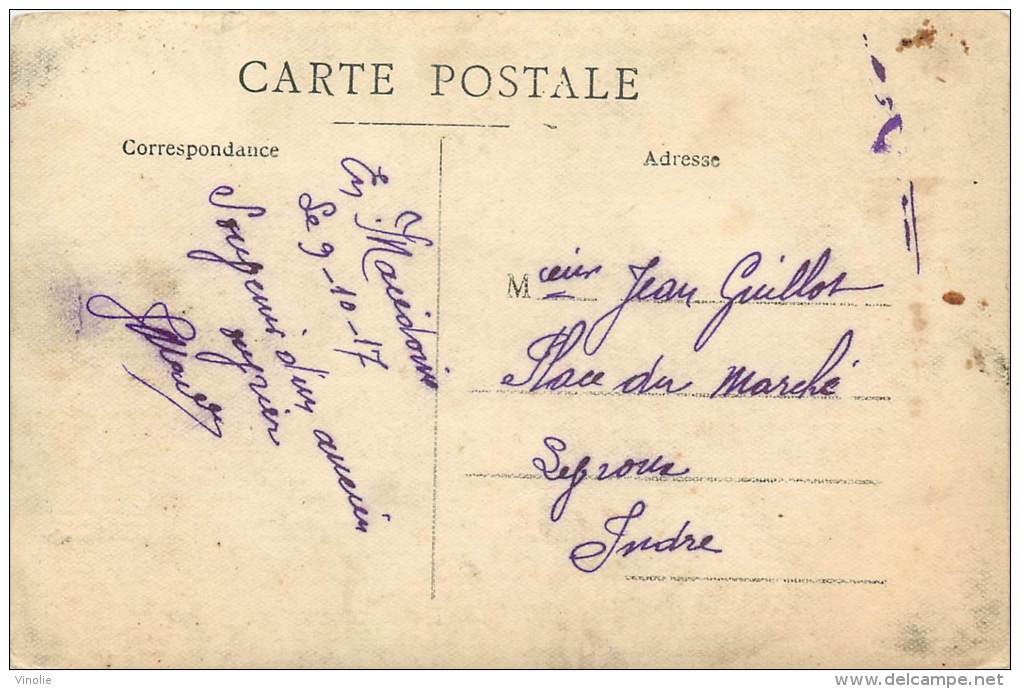 CARTE POSTALE
Correspondance
Adresse
En Macédoine
Le 9-10-17
Souvenir d'un ancien
Mceur Jean Guillot
Place du Marché
Levroux
Indre
Vinolie
www.delcampe.net